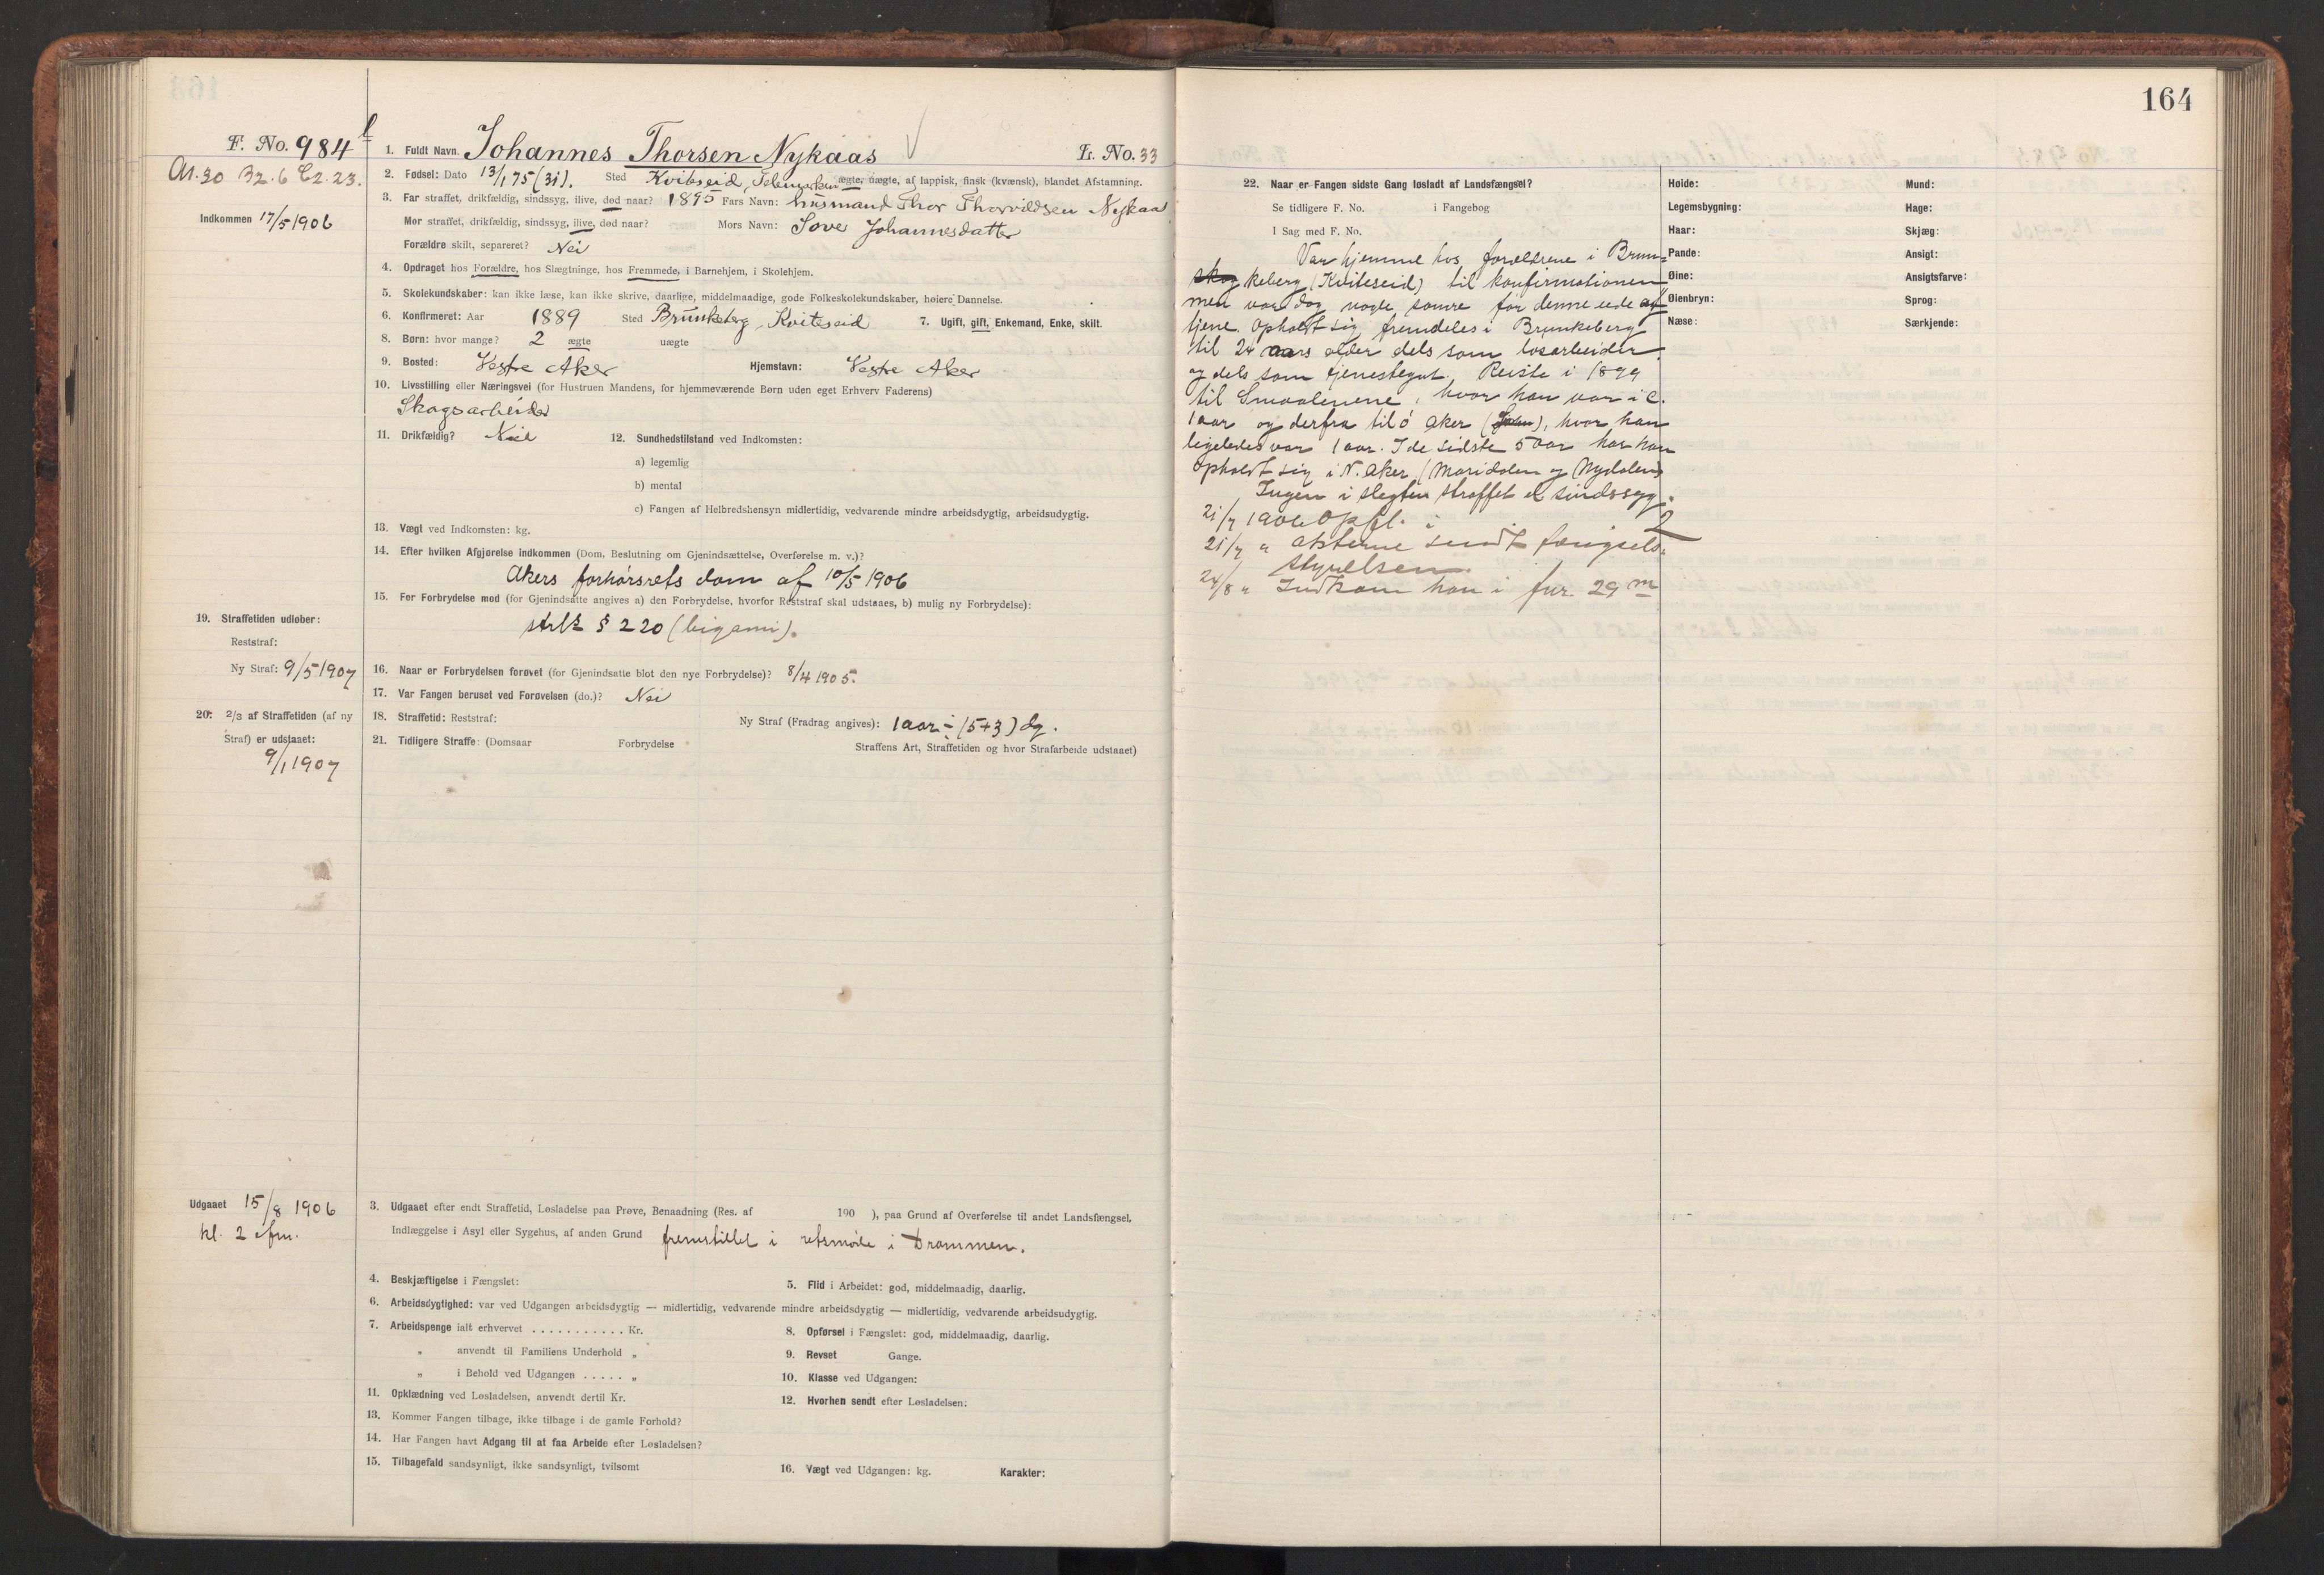 F. No. 984
A1.30 B2.6 C2.23.
Indkommen 17/5 1906
1. Fuldt Navn. Johannes Thorsen Nykaas L. No. 33
2. Fødsel: Dato 13/1 75 (31). Sted Kvitseid, Telemarken ægte, uægte, af lappisk, finsk (kvænsk), blandet Afstamning.
3. Far straffet, drikfældig, sindssyg, ilive, død naar? 1895 Fars Navn: husmand Thor Thorvildsen Nykaas
Mor straffet, drikfældig, sindssyg, ilive, død naar? Mors Navn: Sove Johannesdatter
Forældre skilt, separeret? Nei
4. Opdraget hos Forældre, hos Slægtninge, hos Fremmede, i Barnehjem, i Skolehjem.
5. Skolekundskaber: kan ikke læse, kan ikke skrive, daarlige, middelmaadige, gode Folkeskolekundskaber, høiere Dannelse.
6. Konfirmeret: Aar 1889 Sted Brunkeberg Kviteseid 7. Ugift, gift, Enkemand, Enke, skilt.
8. Børn: hvor mange? 2 ægte uægte
9. Bosted: Vestre Aker Hjemstavn: Vestre Aker
10. Livsstilling eller Næringsvei (for Hustruen Mandens, for hjemmeværende Børn uden eget Erhverv Faderens)
Skogsarbeider
11. Drikfældig? Nei 12. Sundhedstilstand ved Indkomsten:
a) legemlig
b) mental
c) Fangen af Helbredshensyn midlertidig, vedvarende mindre arbeidsdygtig, arbeidsudygtig.
13. Vægt ved Indkomsten: kg.
14. Efter hvilken Afgjørelse indkommen (Dom, Beslutning om Gjenindsættelse, Overførelse m. v.)?
Akers forhørsrets dom af 10/5 1906
15. For Forbrydelse mod (for Gjenindsatte angives a) den Forbrydelse, hvorfor Reststraf skal udstaaes, b) mulig ny Forbrydelse):
§ 220 (bigami).
19. Straffetiden udløber:
Reststraf:
Ny Straf: 9/5 1907
16. Naar er Forbrydelsen forøvet (for Gjenindsatte blot den nye Forbrydelse)? 8/4 1905.
17. Var Fangen beruset ved Forøvelsen (do.)? Nei
20. 2/3 af Straffetiden (af ny
Straf) er udstaaet:
9/1 1907
18. Straffetid: Reststraf: Ny Straf (Fradrag angives): 1 aar ÷ (5+3) dg.
21. Tidligere Straffe: (Domsaar Forbrydelse Straffens Art, Straffetiden og hvor Strafarbeide udstaaet)
Udgaaet 15/8 1906
kl. 2 efm.
3. Udgaaet efter endt Straffetid, Løsladelse paa Prøve, Benaadning (Res. af 190 ), paa Grund af Overførelse til andet Landsfængsel,
Indlæggelse i Asyl eller Sygehus, af anden Grund fremstillet i retsmøde i Drammen.
4. Beskjæftigelse i Fængslet: 5. Flid i Arbeidet: god, middelmaadig, daarlig.
6. Arbeidsdygtighed: var ved Udgangen arbeidsdygtig — midlertidig, vedvarende mindre arbeidsdygtig — midlertidig, vedvarende arbeidsudygtig.
7. Arbeidspenge ialt erhvervet . . . . . . . . . . . Kr. 8. Opførsel i Fængslet: god, middelmaadig, daarlig.
„ anvendt til Familiens Underhold „ 9. Revset Gange.
„ i Behold ved Udgangen . . . . . „ 10. Klasse ved Udgangen:
11. Opklædning ved Løsladelsen, anvendt dertil Kr. 12. Hvorhen sendt efter Løsladelsen:
13. Kommer Fangen tilbage, ikke tilbage i de gamle Forhold?
14. Har Fangen havt Adgang til at faa Arbeide efter Løsladelsen?
15. Tilbagefald sandsynligt, ikke sandsynligt, tvilsomt 16. Vægt ved Udgangen: kg. Karakter:
164
22. Naar er Fangen sidste Gang løsladt af Landsfængsel?
Se tidligere F. No. i Fangebog
I Sag med F. No.
Var hjemme hos forældrene i Brun-
skog keberg (Kviteseid) til konfirmationen
men var dog nogle somre før denne ude og
tjene. Opholdt sig fremdeles i Brunkeberg
til 24 aars alder dels som løsarbeider
og dels som tjenestegut. Reiste i 1899
til Smaalenene, hvor han var i c.
1 aar og derfra til Ø Aker, hvor han
ligeledes var 1 aar. I de sidste 5 aar har han
opholdt sig i N. Aker (Maridalen og Nydalen)
Ingen i slegten straffet el sindssyg.
21/7 1906 Opfl. i 2
21/7 " Akterne sendt fængsels-
styrelsen.
24/8 " Indkom han i fnr. 29 m
Høide: Mund:
Legemsbygning: Hage:
Haar: Skjæg:
Pande: Ansigt:
Øine: Ansigtsfarve:
Øienbryn: Sprog:
Næse: Særkjende: